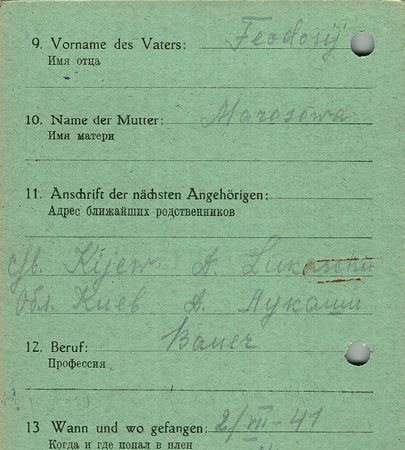 9. Vorname des Vaters: Feodosij
Имя отца
10. Name der Mutter: Marosowa
Имя матери
11. Anschrift der nächsten Angehörigen:
Адрес ближайших родственников
Kijew D. Lukaschi
Обл. Киев д. Лукаши
12. Beruf: Bauer
Профессия
13 Wann und wo gefangen: 2/VII-41
Когда и где попал в плен